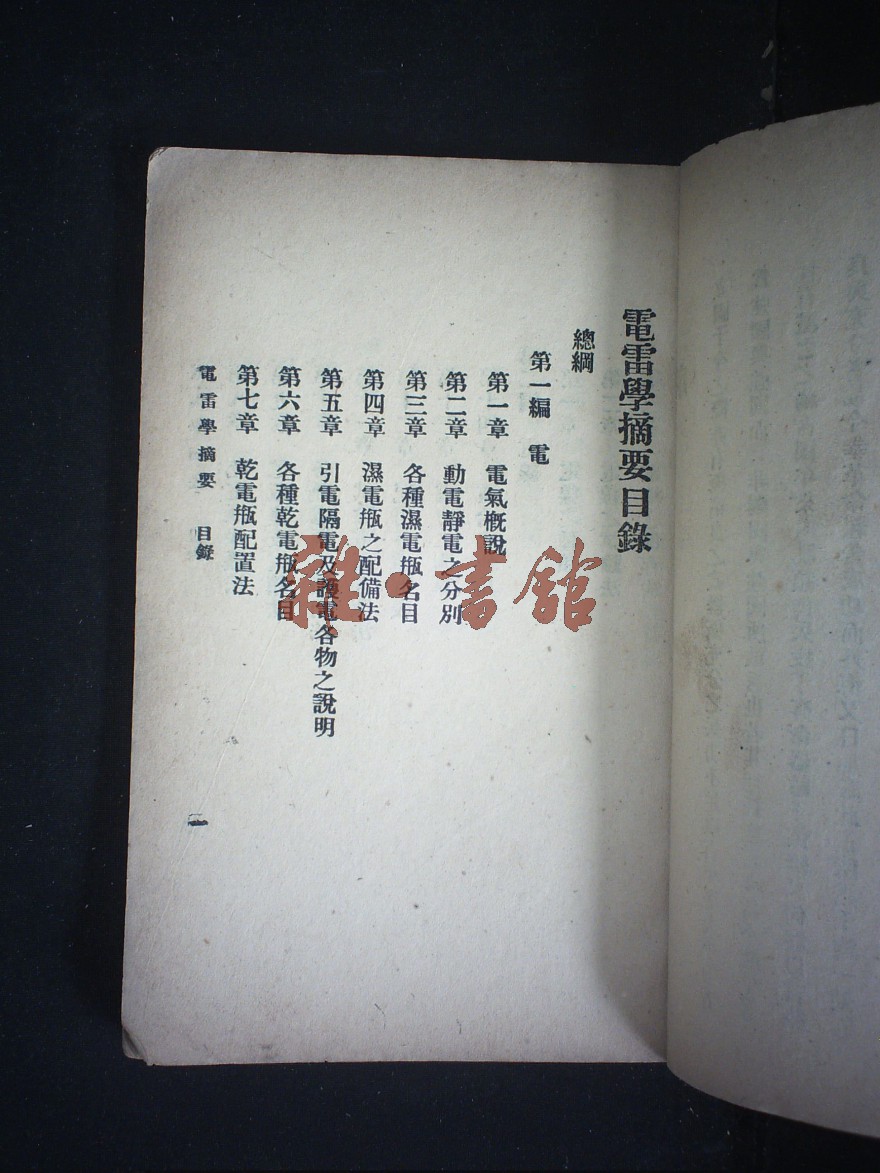 電雷學摘要目錄
總綱
第一編　電
第一章　電氣概說
第二章　動電靜電之分別
第三章　各種濕電瓶名目
第四章　濕電瓶之配備法
第五章　引電隔電及護電各物之說明
第六章　各種乾電瓶名目
第七章　乾電瓶配置法
電雷學摘要　目錄
雜·書館